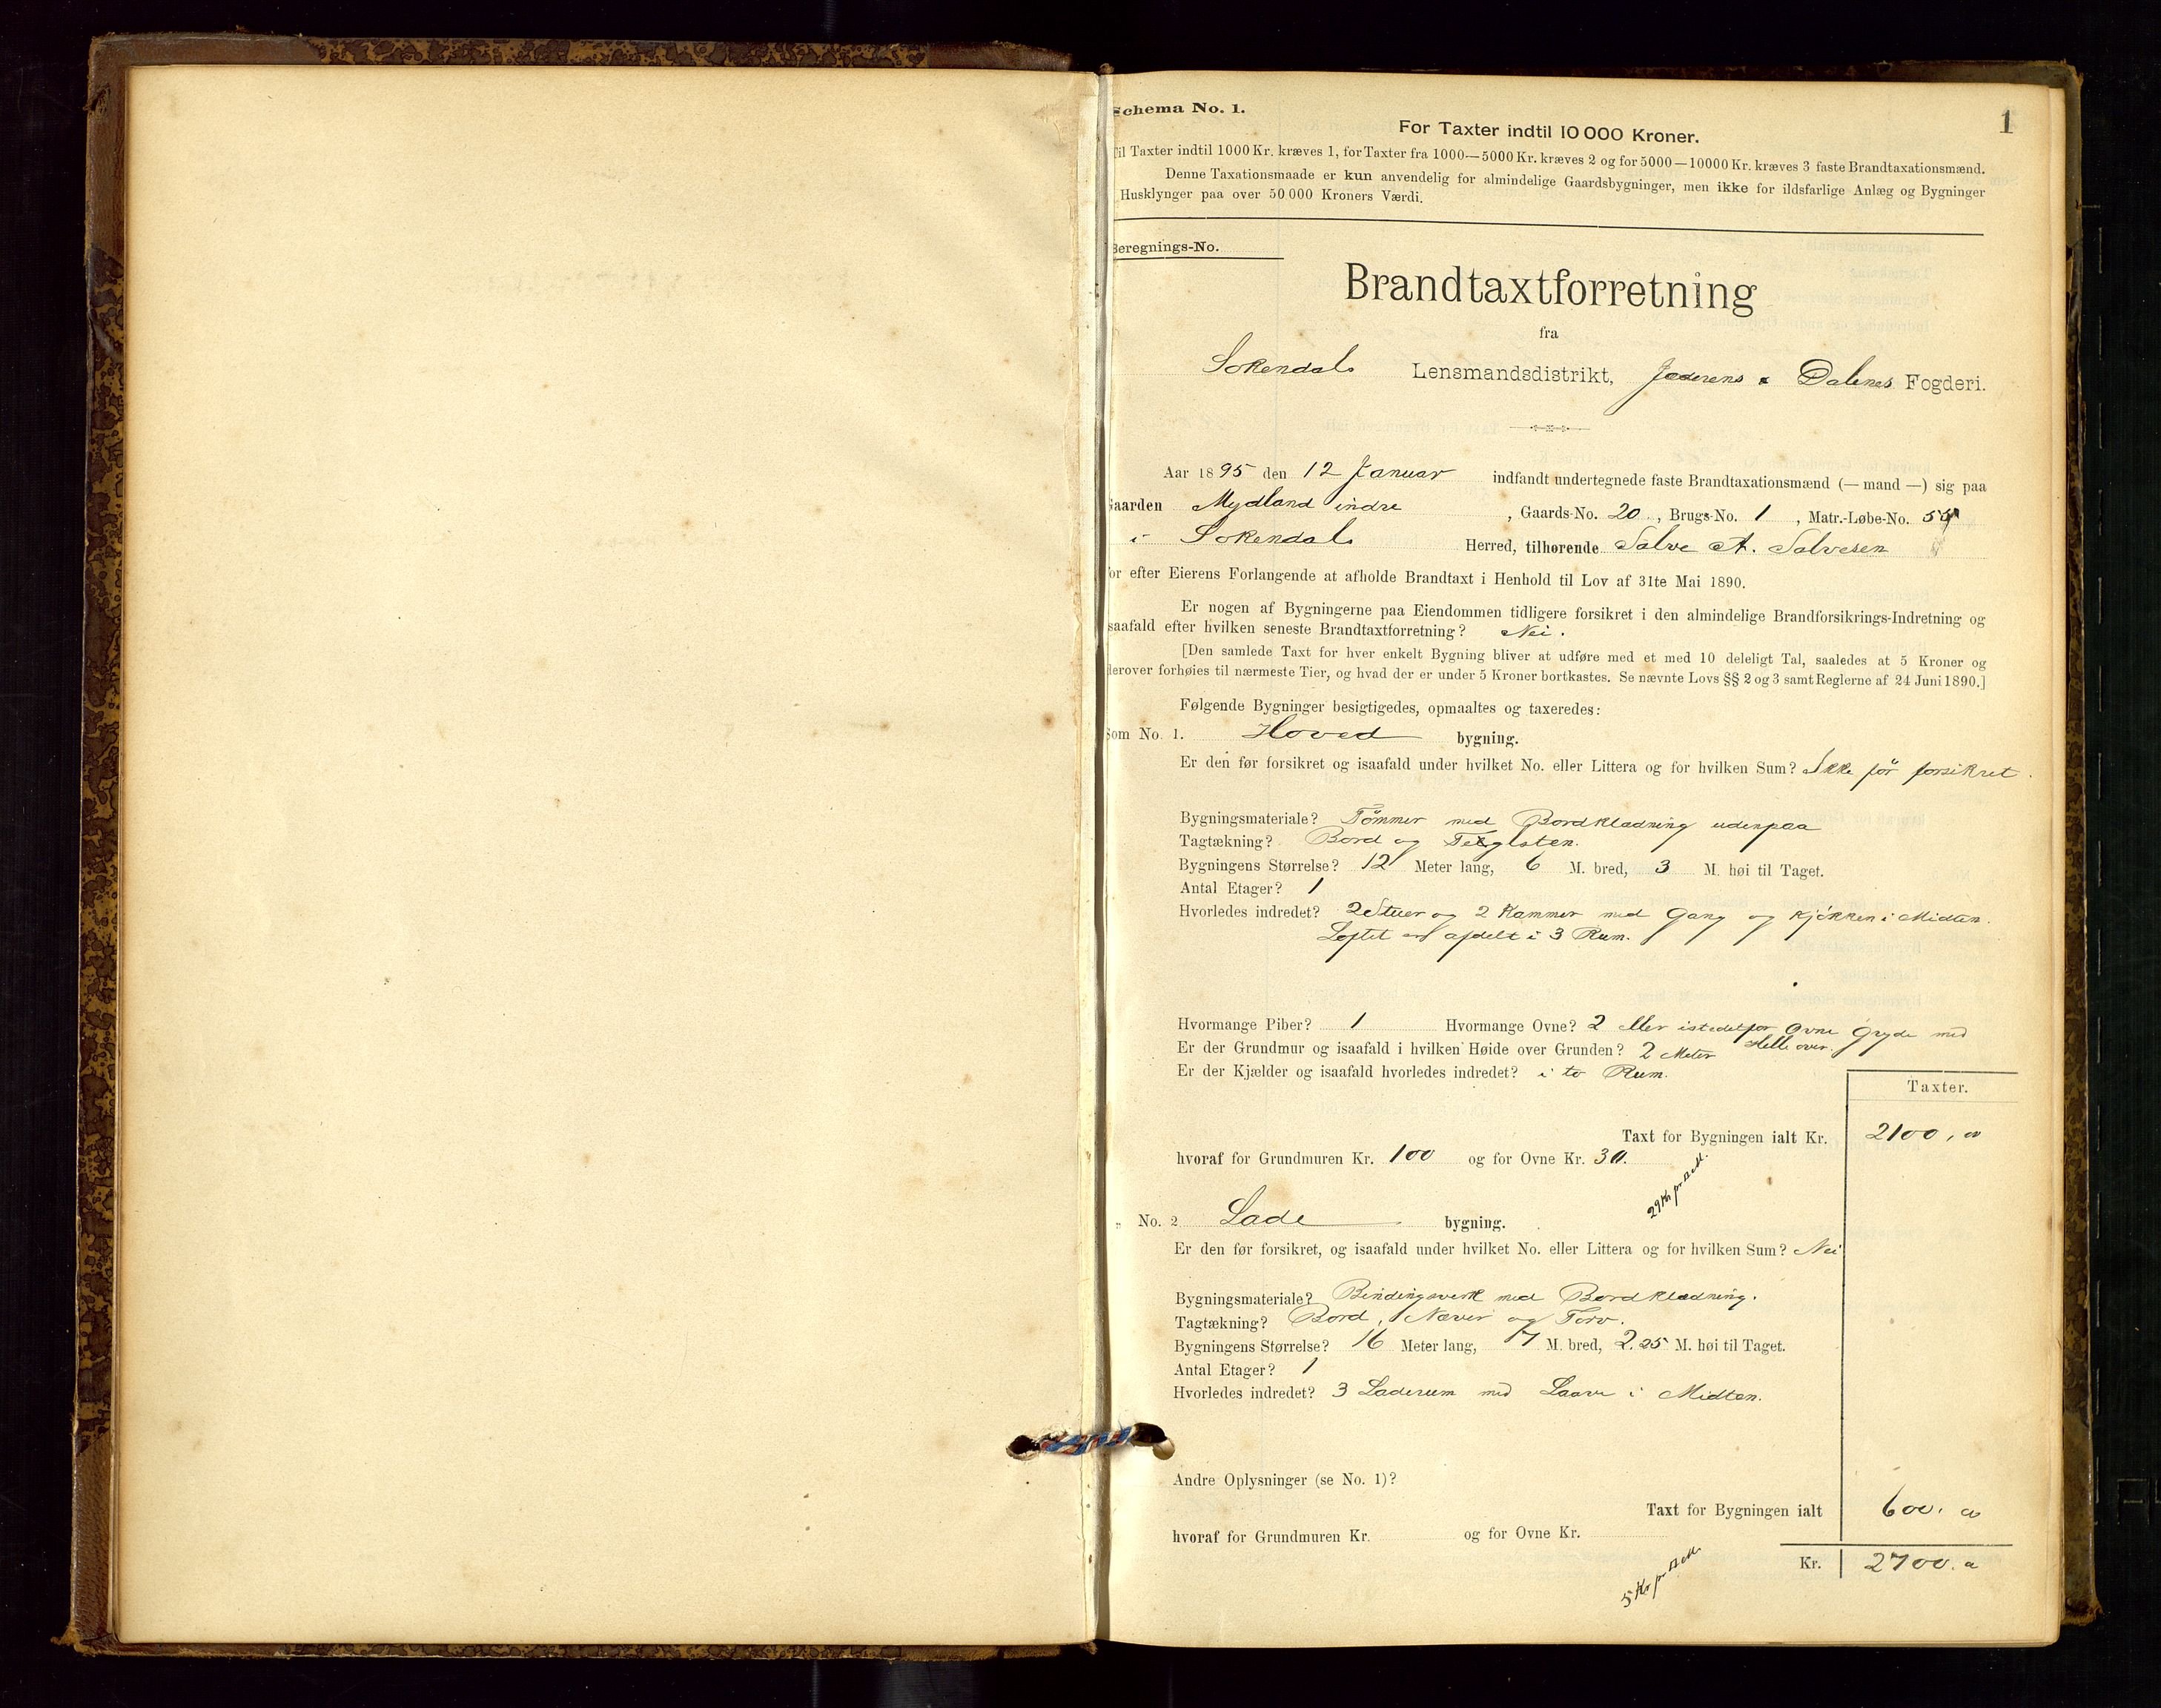 1
Schema No. 1.
For Taxter indtil 10 000 Kroner.
Til Taxter indtil 1000 Kr. kræves 1, for Taxter fra 1000—5000 Kr. kræves 2 og for 5000—10000 Kr. kræves 3 faste Brandtaxationsmænd.
Denne Taxationsmaade er kun anvendelig for almindelige Gaardsbygninger, men ikke for ildsfarlige Anlæg og Bygninger
Husklynger paa over 50 000 Kroners Værdi.
Beregnings-No.
Brandtaxtforretning
fra
Sokendals Lensmandsdistrikt, Jæderens & Dalenes Fogderi.
Aar 1895 den 12 Januar indfandt undertegnede faste Brandtaxationsmænd (— mand —) sig paa
Gaarden Mydland indre, Gaards-No. 20, Brugs-No. 1, Matr.-Løbe-No.
i Sokendals Herred, tilhørende Salve A. Salvesen
for efter Eierens Forlangende at afholde Brandtaxt i Henhold til Lov af 31te Mai 1890.
Er nogen af Bygningerne paa Eiendommen tidligere forsikret i den almindelige Brandforsikrings-Indretning og
isaafald efter hvilken seneste Brandtaxtforretning? Nei.
[Den samlede Taxt for hver enkelt Bygning bliver at udføre med et med 10 deleligt Tal, saaledes at 5 Kroner og
derover forhøies til nærmeste Tier, og hvad der er under 5 Kroner bortkastes. Se nævnte Lovs §§ 2 og 3 samt Reglerne af 24 Juni 1890.]
Følgende Bygninger besigtigedes, opmaaltes og taxeredes:
Som No. 1. Hoved bygning.
Er den før forsikret og isaafald under hvilket No. eller Littera og for hvilken Sum? Ikke før forsikret.
Bygningsmateriale? Tømmer med Bordklædning udenpaa
Tagtækning? Bord og Teglsten.
Bygningens Størrelse? 12 Meter lang, 6 M. bred, 3 M. høi til Taget.
Antal Etager? 1
Hvorledes indredet? 2 Stuer og 2 Kammer med Gang og Kjøkken i Midten.
Loftet er afdelt i 3 Rum.
Hvormange Piber? 1 Hvormange Ovne? 2 eller istedetfor Ovne Gryde med
Helle over.
Er der Grundmur og isaafald i hvilken Høide over Grunden? 2 Meter
Er der Kjælder og isaafald hvorledes indredet? i to Rum.
Taxter.
Taxt for Bygningen ialt Kr. 2100,00
hvoraf for Grundmuren Kr. 100 og for Ovne Kr. 30.
29 Kr pr □ M.
„ No. 2 Lade bygning.
Er den før forsikret, og isaafald under hvilket No. eller Littera og for hvilken Sum? Nei
Bygningsmateriale? Bindingsverk med Bordklædning.
Tagtækning? Bord, Næver og Torv.
Bygningens Størrelse? 16 Meter lang, 7 M. bred, 2.25 M. høi til Taget.
Antal Etager? 1
Hvorledes indredet? 3 Laderum med Laave i Midten.
Andre Oplysninger (se No. 1)?
Taxt for Bygningen ialt 600.00
hvoraf for Grundmuren Kr. og for Ovne Kr.
5 Kr pr □ M.
Kr. 2700.00